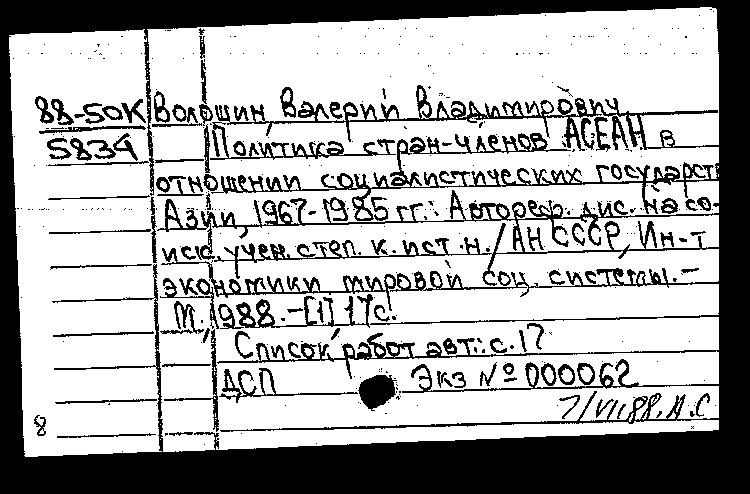 88-50К Волошин, Валерий Владимирович
5834 Политика стран-членов АСЕАН в
отношении социалистических государств
Азии, 1967-1985 гг.: Автореф. дис. на со-
иск. учен. степ. к. ист. н. / АН СССР, Ин-т
экономики мировой соц. системы. -
М., 1988. - [1], 17 с.
Список работ авт.: с. 17
ДСП Экз № 000062
7/VI.88. А.С
8